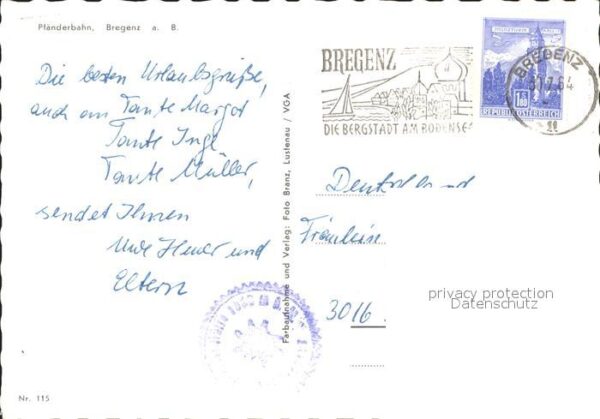 Pfänderbahn, Bregenz a. B.
Die besten Urlaubsgrüße,
auch an Tante Margot
Tante Inge
Tante Müller,
sendet Ihnen
Uwe und
Eltern
Nr. 115
Farbaufnahme und Verlag: Foto Branz, Lustenau / VGA
BREGENZ
DIE BERGSTADT AM BODENSEE
BREGENZ
7.64
1.80
REPUBLIK ÖSTERREICH
Deutschland
Fräulein
3016
privacy protection
Datenschutz